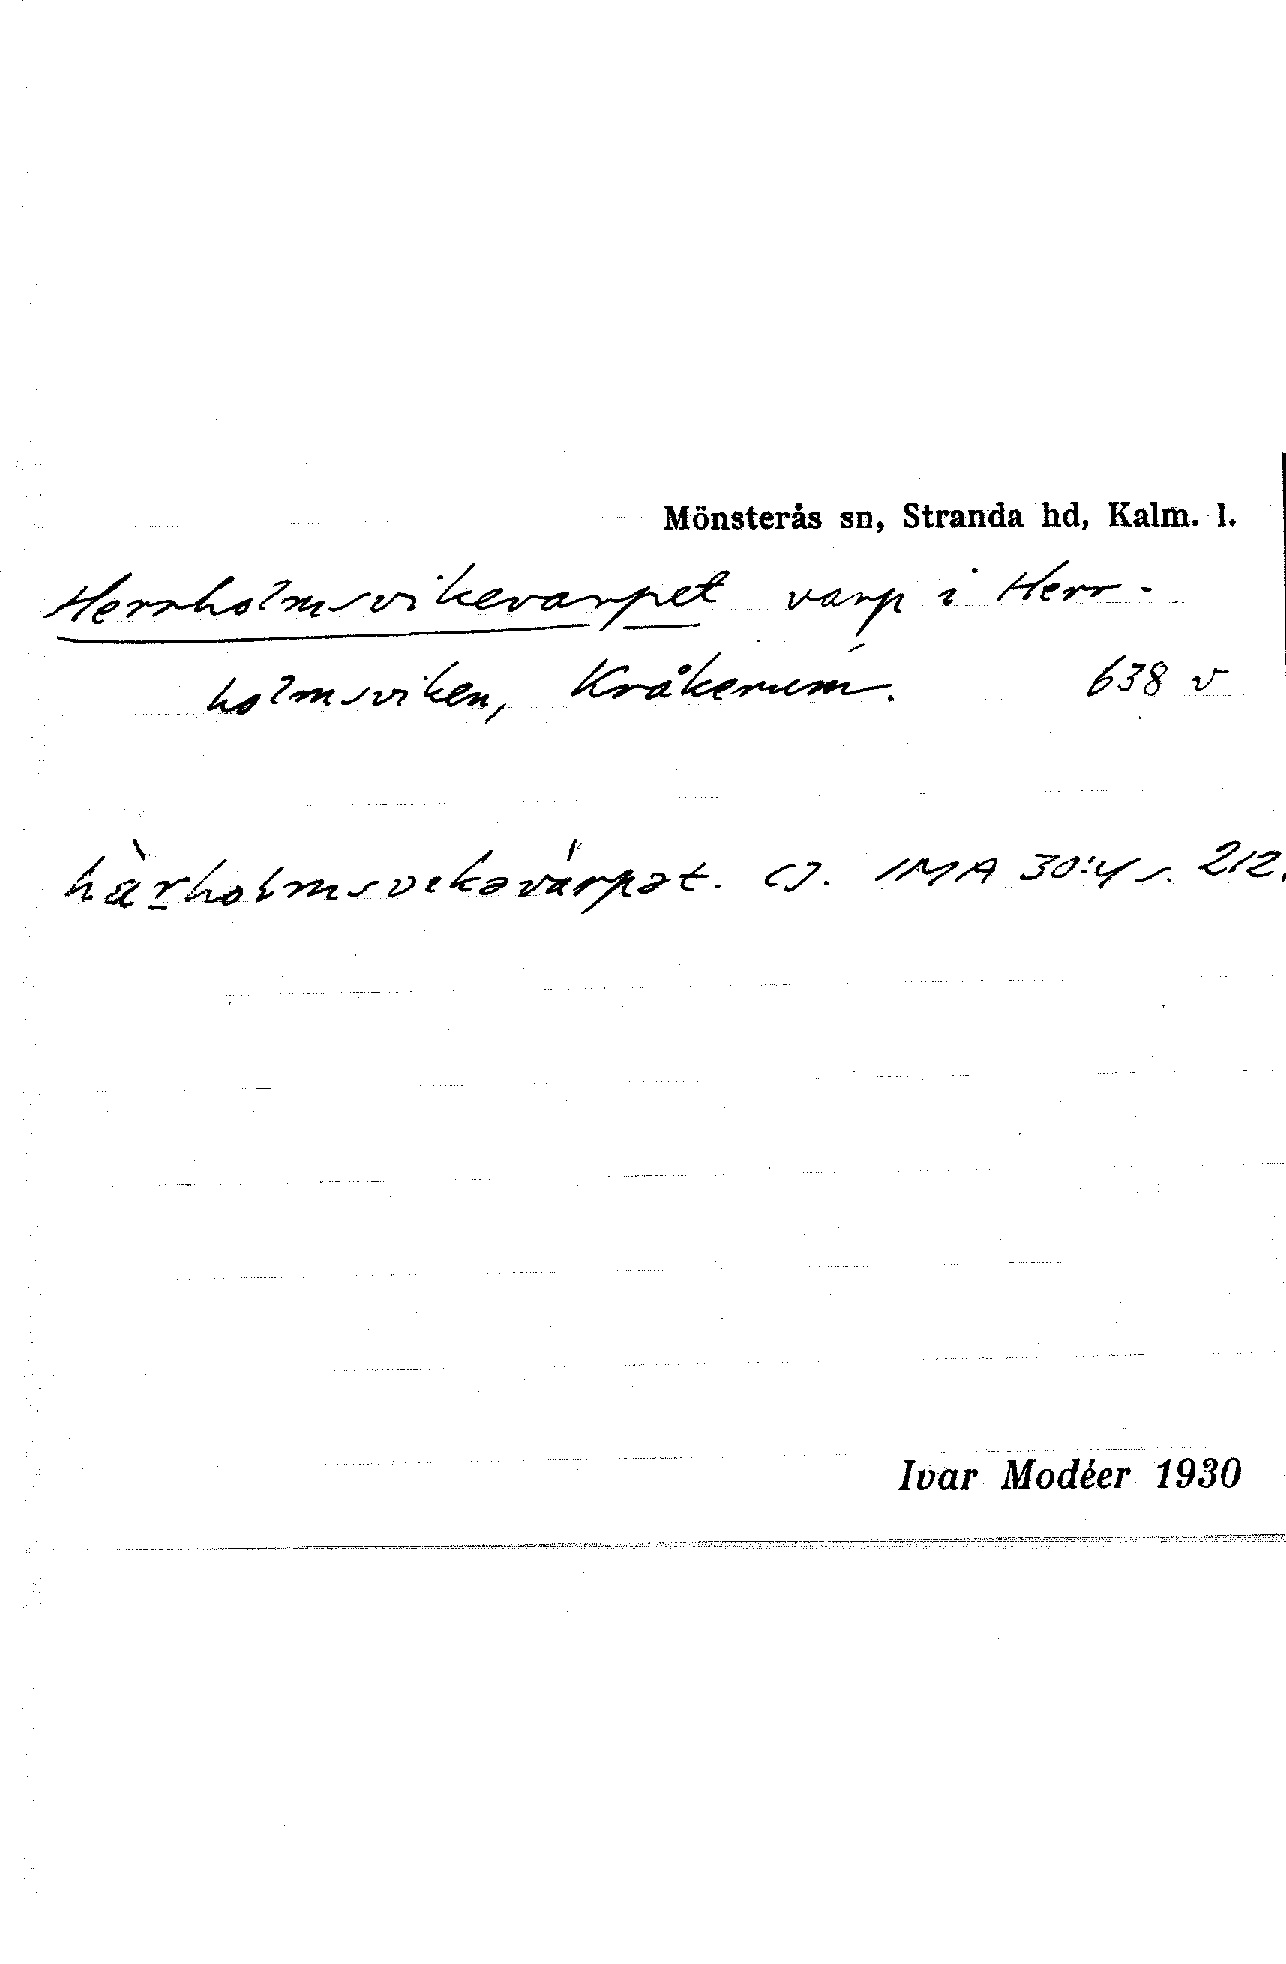 Mönsterås sn, Stranda hd, Kalm. l.
Herrholmsvikevarpet varp i Herr-
holmsviken, Kråkerum. 638 v
hàrholmsvikəvárpət. CJ. IMA 30:4 s. 212.
Ivar Modéer 1930